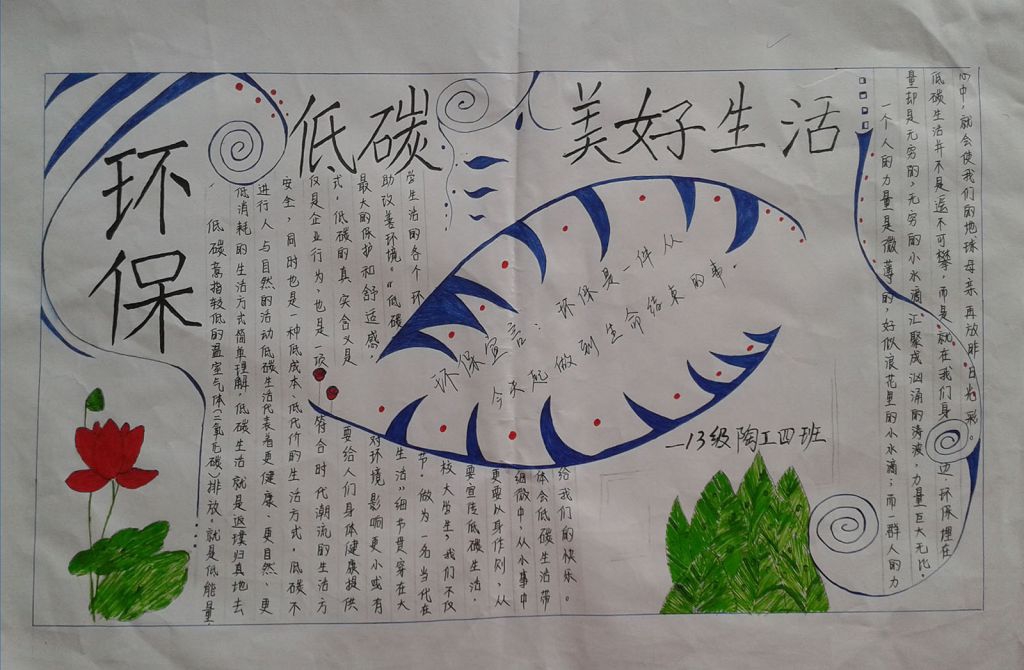 环保
低碳 美好生活
低碳意指较低的温室气体(二氧化碳)排放。就是低能量、
低消耗的生活方式简单理解,低碳生活就是返璞归真地去
进行人与自然的活动低碳生活代表着更健康、更自然、更
安全,同时也是一种低成本、低代价的生活方式,低碳不
仅是企业行为,也是一项符合时代潮流的生活方
式,低碳的真实含义是要给人们身体健康提供
最大的保护和舒适感,对环境影响更小或有
助改善环境。“低碳生活”细节贯穿在大
学生活的各个环节。做为一名当代在
校大学生,我们不仅
要宣传低碳生活,
更要以身作则,从
细微中,从小事中
体会低碳生活带
给我们的快乐。
环保宣言:环保是一件从
今天起做到生命结束的事。
—13级陶工四班
一个人的力量是微薄的,好似浪花里的小水滴;而一群人的力
量却是无穷的,无穷的小水滴,汇聚成汹涌的涛波,力量巨大无比。
低碳生活并不是遥不可攀,而是就在我们身边,环保埋在
心中,就会使我们的地球母亲再放昨日光彩。